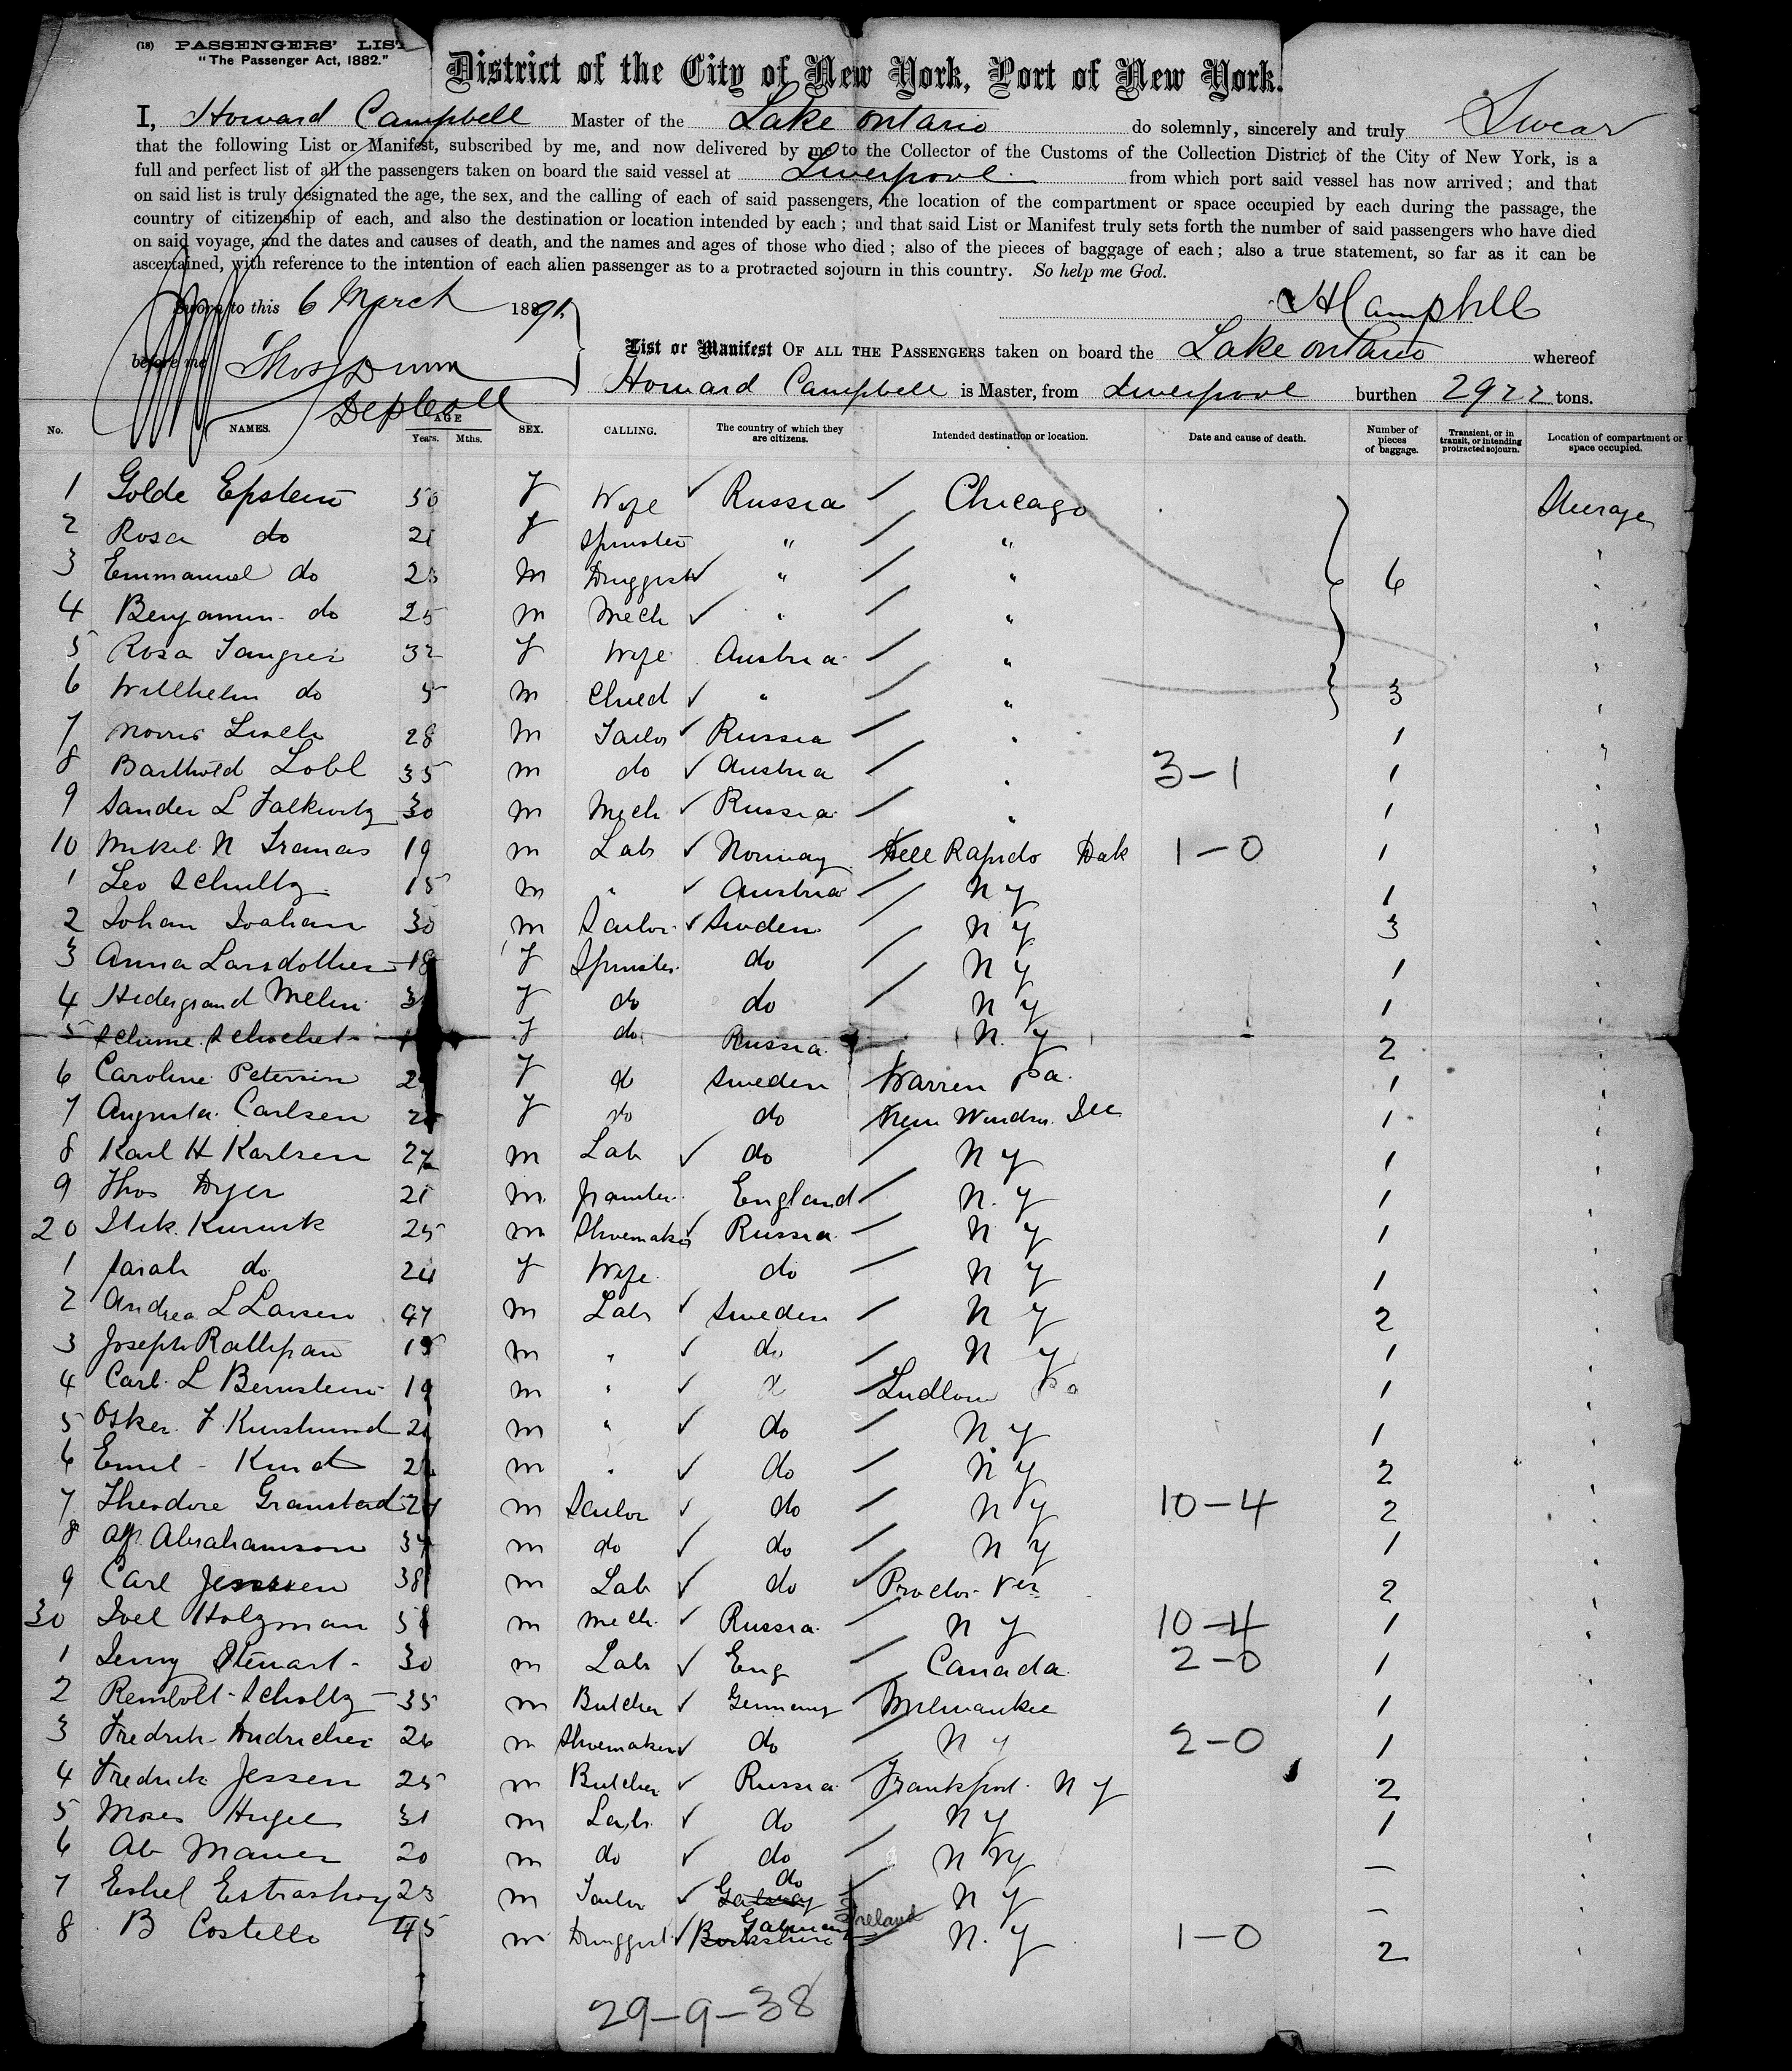 (18) PASSENGERS' LIST
"The Passenger Act, 1882."
District of the City of New York, Port of New York.
I, Howard Campbell Master of the Lake Ontario do solemnly, sincerely and truly Swear
that the following List or Manifest, subscribed by me, and now delivered by me to the Collector of the Customs of the Collection District of the City of New York, is a
full and perfect list of all the passengers taken on board the said vessel at Liverpool from which port said vessel has now arrived; and that
on said list is truly designated the age, the sex, and the calling of each of said passengers, the location of the compartment or space occupied by each during the passage, the
country of citizenship of each, and also the destination or location intended by each; and that said List or Manifest truly sets forth the number of said passengers who have died
on said voyage, and the dates and causes of death, and the names and ages of those who died; also of the pieces of baggage of each; also a true statement, so far as it can be
ascertained, with reference to the intention of each alien passenger as to a protracted sojourn in this country. So help me God.
Sworn to this 6 March 1891.
H Campbell
before me Thos Dunn
Dep Coll
List or Manifest OF ALL THE PASSENGERS taken on board the Lake Ontario whereof
Howard Campbell is Master, from Liverpool burthen 2922 tons.
No. NAMES. AGE Years. Mths. SEX. CALLING. The country of which they are citizens. Intended destination or location. Date and cause of death. Number of pieces of baggage. Transient, or in transit, or intending protracted sojourn. Location of compartment or space occupied.
1 Golde Epstein 50 f Wife Russia Chicago Steerage
2 Rosa do 21 f Spinster " "
3 Emmanuel do 23 m Druggist " " 6
4 Benjamin do 25 m Mech " "
5 Rosa 32 f Wife Austria "
6 Willhelm do 5 m Child " " 3
7 Morris 28 m Tailor Russia " 1
8 Barthold Lobl 35 m do Austria " 3-1 1
9 Sander L Falkwitz 30 m Mech Russia " 1
10 Mikel N 19 m Lab Norway Dell Rapids Dak 1-0 1
1 Leo Schultz 15 m " Austria N Y 1
2 Johan 30 m Sailor Sweden N Y 3
3 Anna Larsdotter 18 f Spinster do N Y 1
4 Melin f do do N Y 1
5 Schochet f do Russia N.Y 2
6 Caroline Peterson f do Sweden Warren Pa 1
7 Augusta Carlsen f do do New Windsor Ill 1
8 Karl H Karlsen 27 m Lab do N Y 1
9 Thos Dyer 21 m England N.Y 1
20 Itzik 25 m Shoemaker Russia N Y 1
1 Sarah do 24 f Wife do N Y 1
2 Andrea L Larsen 47 m Lab Sweden N Y 2
3 Joseph 19 m " do N Y 1
4 Carl L Bernstein 19 m " do Ludlow Pa 1
5 Oskar F m " do N Y 1
6 Emil m " do N Y 2
7 Theodore m Sailor do N Y 10-4 2
8 Alf. Abrahamson 34 m do do N Y 1
9 Carl 38 m Lab do Proctor Ver 2
30 Joel Holzman m Mech Russia N Y 10-4 1
1 Stewart 30 m Lab Eng Canada 2-0 1
2 Scholtz 35 m Butcher Germany Milwaukee 1
3 Fredrik 26 m Shoemaker do N Y 2-0 1
4 Fredrick Jessen 25 m Butcher Russia Frankfort N Y 2
5 Moses 31 m Lab do N Y 1
6 Ab 20 m do do N Y –
7 23 m Tailor do N Y –
8 B Costello 45 m Druggist Galway Ireland N.Y 1-0 2
29-9-38